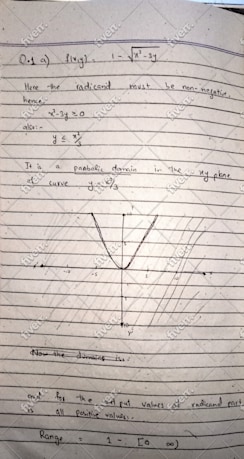 Q.1 a) f(x,y) = 1 - √x²-3y
Here the radicand must be non-negative,
hence,
x²-3y ≥ 0
also:-
y ≤ x²/3
It is a parabolic domain in the xy plane
of curve y = x²/3
Now the domain is:
and for the output values of radicand part
is all positive values:-
Range = 1 - [0 ∞)